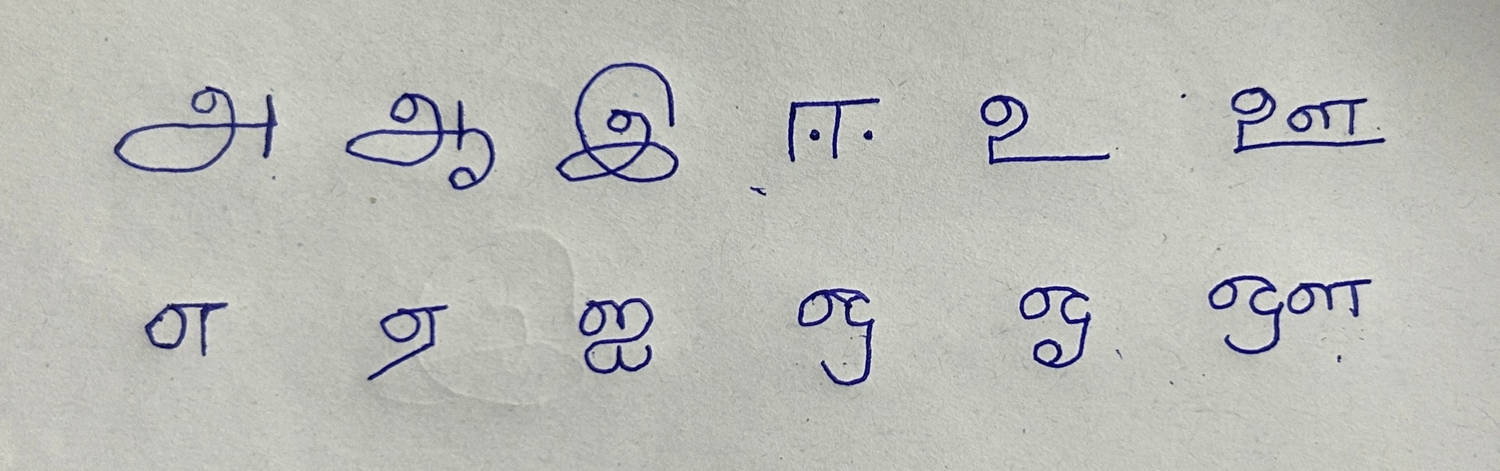 அ ஆ இ ஈ உ ஊ
எ ஏ ஐ ஒ ஓ ஔ